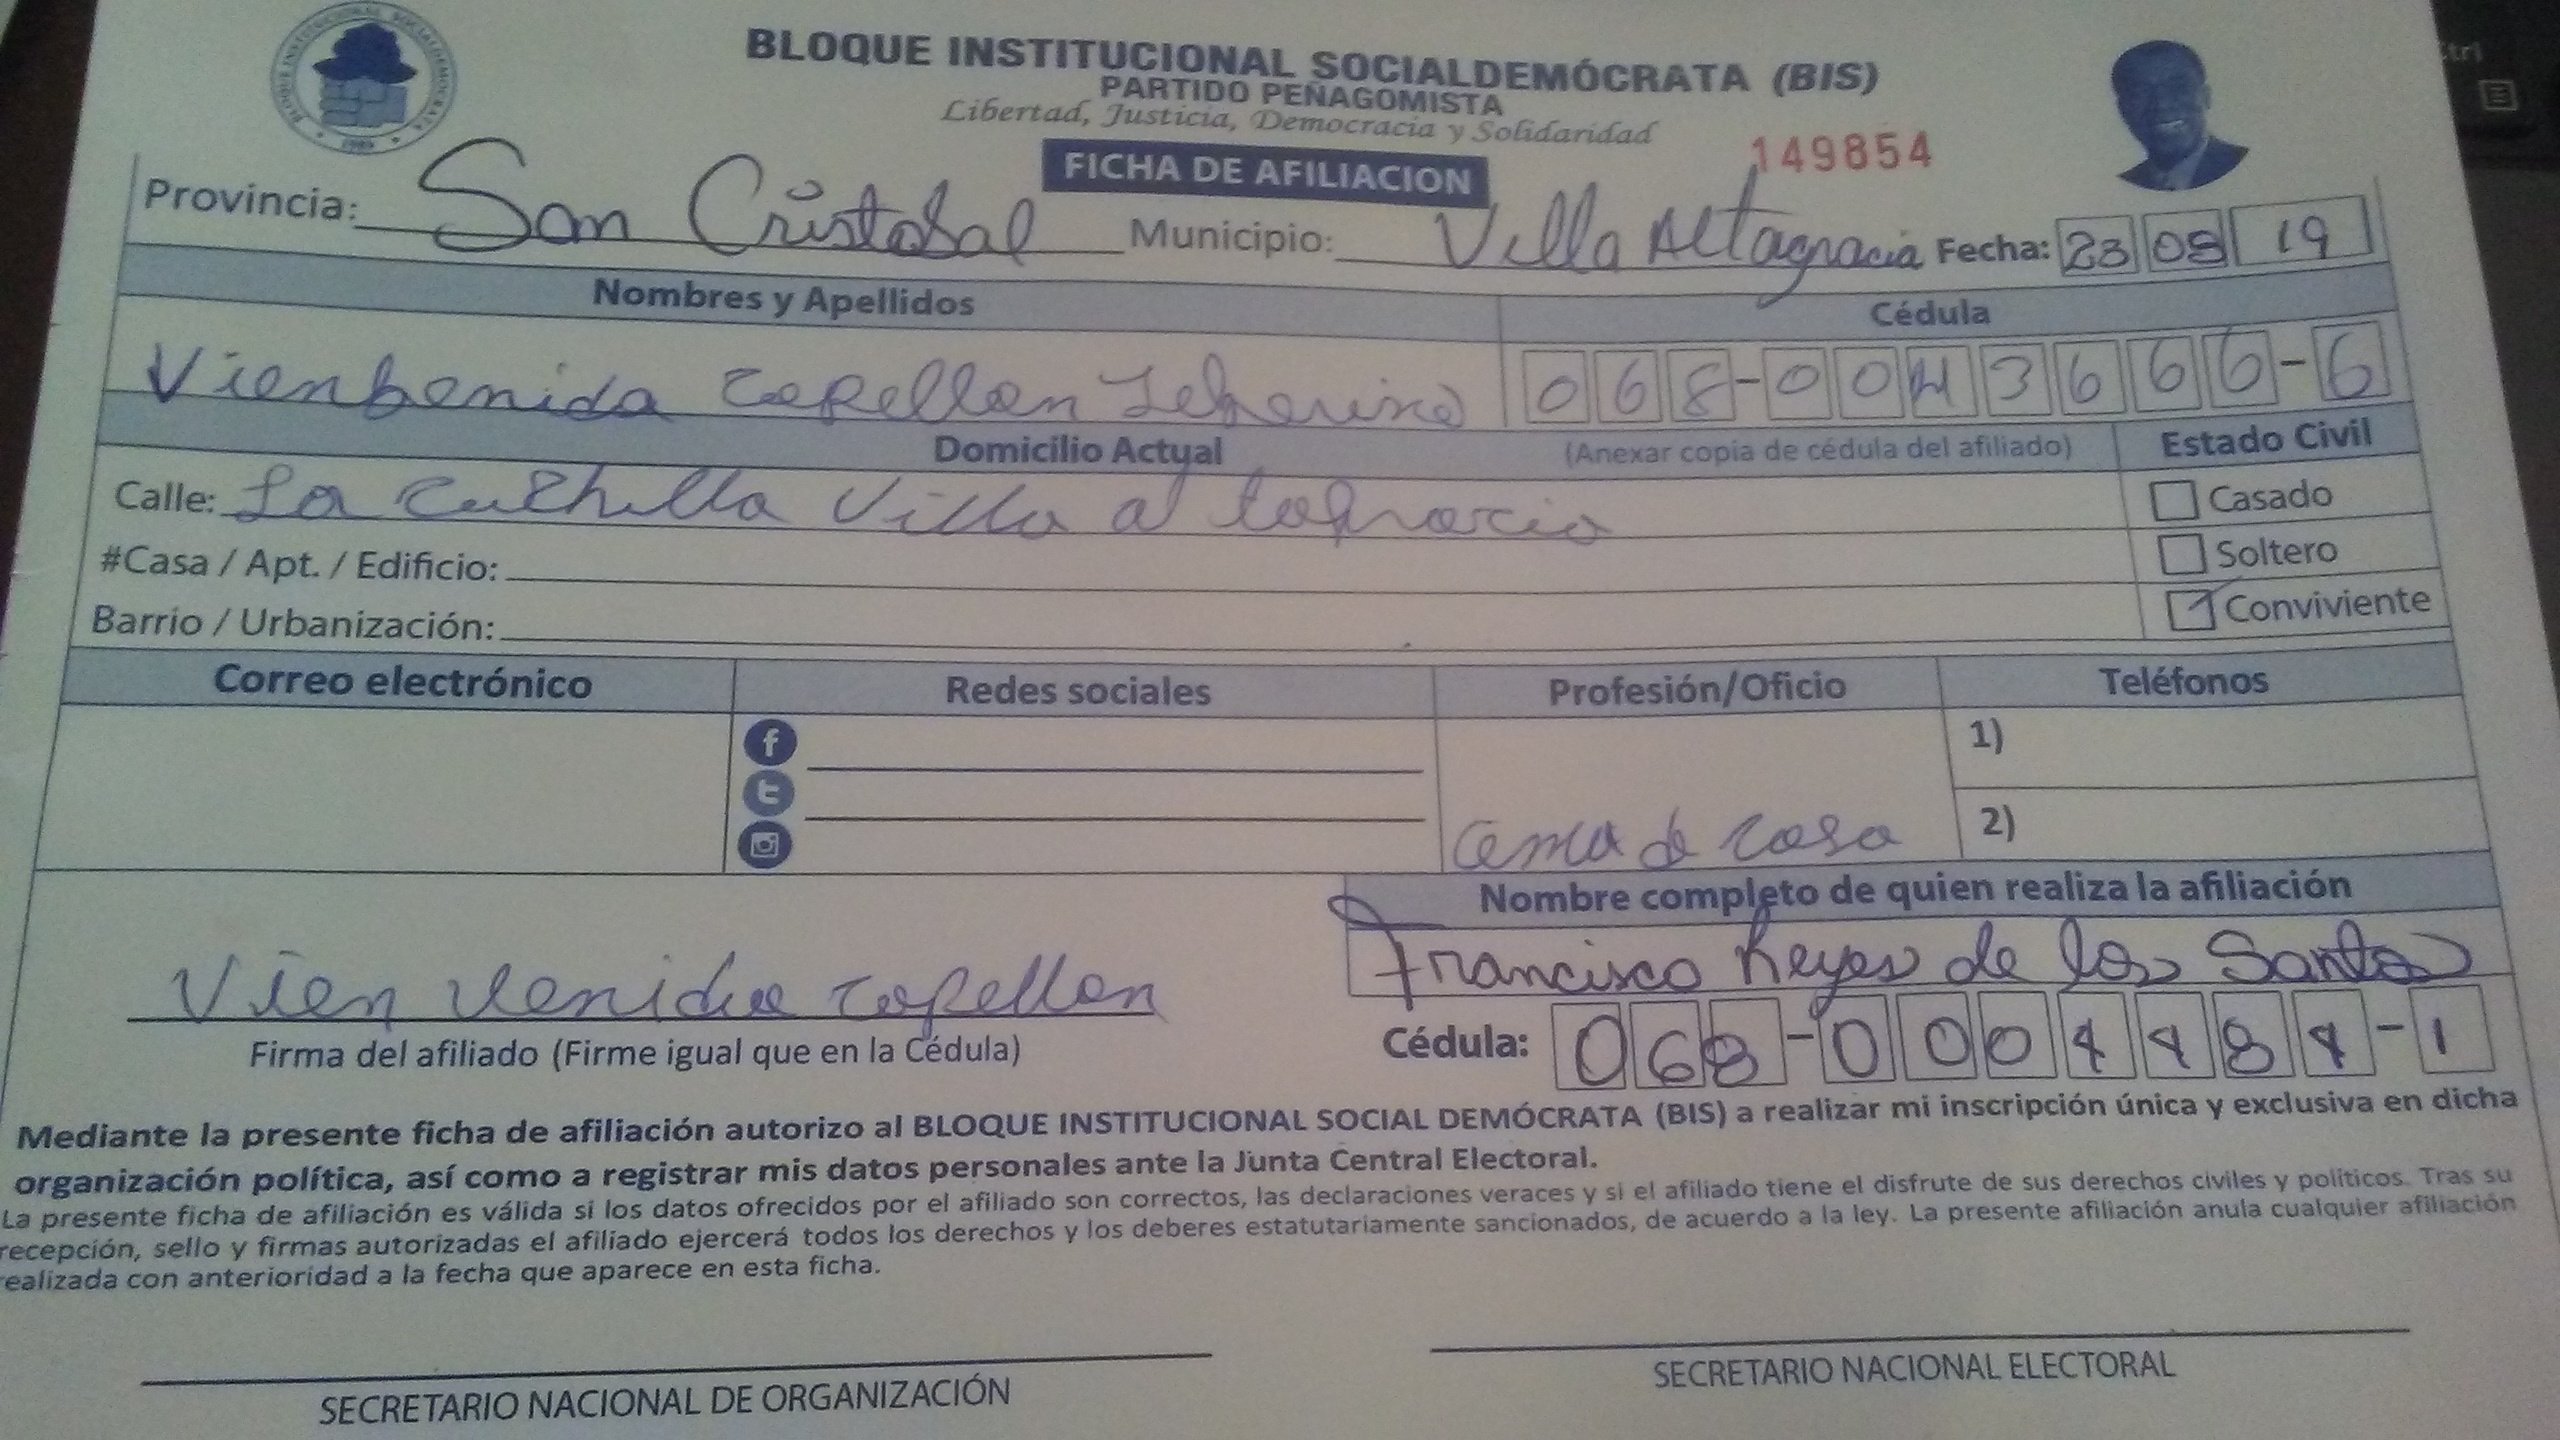 BLOQUE INSTITUCIONAL SOCIALDEMÓCRATA (BIS)
PARTIDO PEÑAGOMISTA
Libertad, Justicia, Democracia y Solidaridad
FICHA DE AFILIACION
149854
Provincia: San Cristobal Municipio: Villa Altagracia Fecha: 23 08 19
Nombres y Apellidos Cédula
Vienbenida Capellan 068-0043666-6
Domicilio Actual (Anexar copia de cédula del afiliado) Estado Civil
Calle: La Cuchilla Villa altagracia
Casado
#Casa / Apt. / Edificio:
Soltero
Barrio / Urbanización:
Conviviente
Correo electrónico Redes sociales Profesión/Oficio Teléfonos
1)
2)
ama de casa
Nombre completo de quien realiza la afiliación
Francisco Reyes de los Santos
Vien venida capellan
Firma del afiliado (Firme igual que en la Cédula)
Cédula: 068-0004484-1
Mediante la presente ficha de afiliación autorizo al BLOQUE INSTITUCIONAL SOCIAL DEMÓCRATA (BIS) a realizar mi inscripción única y exclusiva en dicha
organización política, así como a registrar mis datos personales ante la Junta Central Electoral.
La presente ficha de afiliación es válida si los datos ofrecidos por el afiliado son correctos, las declaraciones veraces y si el afiliado tiene el disfrute de sus derechos civiles y políticos. Tras su
recepción, sello y firmas autorizadas el afiliado ejercerá todos los derechos y los deberes estatutariamente sancionados, de acuerdo a la ley. La presente afiliación anula cualquier afiliación
realizada con anterioridad a la fecha que aparece en esta ficha.
SECRETARIO NACIONAL DE ORGANIZACIÓN
SECRETARIO NACIONAL ELECTORAL